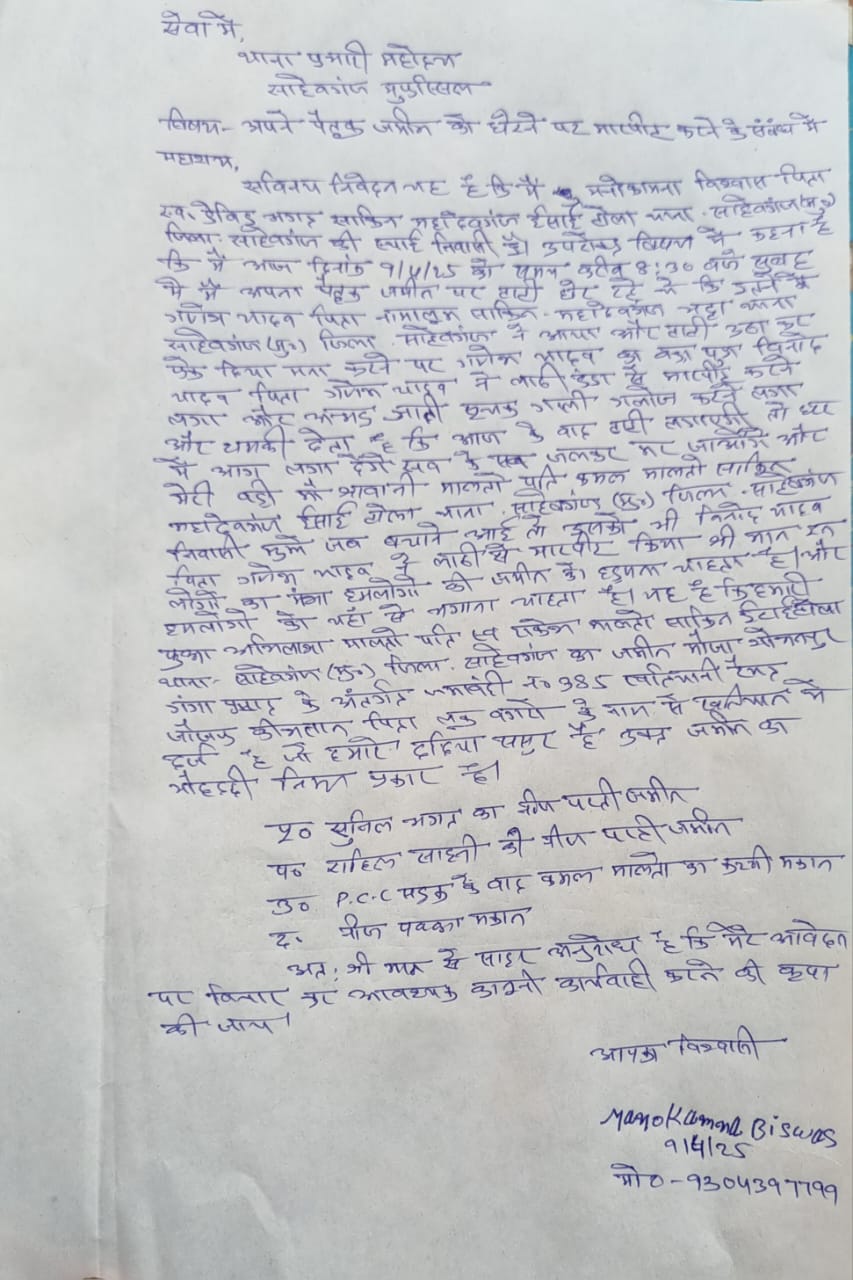 सेवा में,
थाना प्रभारी महोदय
साहेबगंज मुफस्सिल
विषय - अपने पैतृक जमीन को घेरने पर मारपीट करने के संबंध में
महाशय,
सविनय निवेदन यह है कि मैं मनोकामना विश्वास पिता
स्व. डेविड भगत साकिन महादेवगंज ईसाई टोला थाना - साहेबगंज (मु०)
जिला - साहेबगंज की स्थाई निवासी हूँ। उपरोक्त विषय में कहना है
कि मैं आज दिनांक 9/4/25 को समय करीब 8:30 बजे सुबह
में मैं अपना पैतृक जमीन पर टाटी घेर रहे थे कि इतने में
गणेश यादव पिता नामालुम साकिन - महादेवगंज भट्टा थाना
साहेबगंज (मु०) जिला - साहेबगंज ने आया और टाटी उठा कर
फेंक दिया मना करने पर गणेश यादव का बड़ा पुत्र विनोद
यादव पिता गणेश यादव ने लाठी डंडा से मारपीट करने
लगा और अभद्र जाती सूचक गाली गलौज करने लगा
और धमकी देता है कि आज के बाद टाटी लगाएगी तो घर
में आग लगा देंगे सब के सब जलकर मर जाओगे और
मेरी बड़ी माँ भवानी मालतो पति कमल मालतो साकिन
महादेवगंज ईसाई टोला थाना - साहेबगंज (मु०) जिला - साहेबगंज
निवासी मुझे जब बचाने आई तो उसको भी विनोद यादव
पिता गणेश यादव ने लाठी से मारपीट किया श्री मान इन
लोगों का मंशा हमलोगों की जमीन को हड़पना चाहता है। और
हमलोगों को यहाँ से भगाना चाहता है। यह है कि हमारी
फुआ अभिलाषा मालतो पति स्व राकेश मालतो साकिन ईसाई टोला
थाना - साहेबगंज (मु०) जिला - साहेबगंज का जमीन मौजा
गंगा प्रसाद के अंतर्गत जमाबंदी न० 385 खतियानी रैयत
जोसफ पिता लुक के नाम से खतियान में
दर्ज है जो हमारे ददिया ससुर है उक्त जमीन का
चौहद्दी निम्न प्रकार है।
पू० सुनिल भगत का परती जमीन
प० की परती जमीन
उ० P.C.C सड़क के बाद कमल मालतो का करमी मकान
द. पक्का मकान
अतः श्री मान से सादर अनुरोध है कि मेरे आवेदन
पर विचार कर आवश्यक कानूनी कार्यवाही करने की कृपा
की जाय।
आपका विश्वासी
Manokamna Biswas
9/4/25
मो० - 9304397799